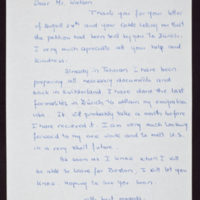 Dear Mr. Watson
Thank you for your letter
of August 29th and your cable telling me that
the petition had been sent by you to Zürich.
I very much appreciate all your help and
kindness.
Already in Taiwan I have been
preparing all necessary documents and
back in Switzerland I have done the last
formalities in Zürich to obtain my emigration
visa. It will probably take a month before
I have received it. I am very much looking
forward to my new work and to meet U.S.
in a very short future.
As soon as I know when I will
be able to leave for Boston, I will let you
know. Hoping to see you soon.
with best regards